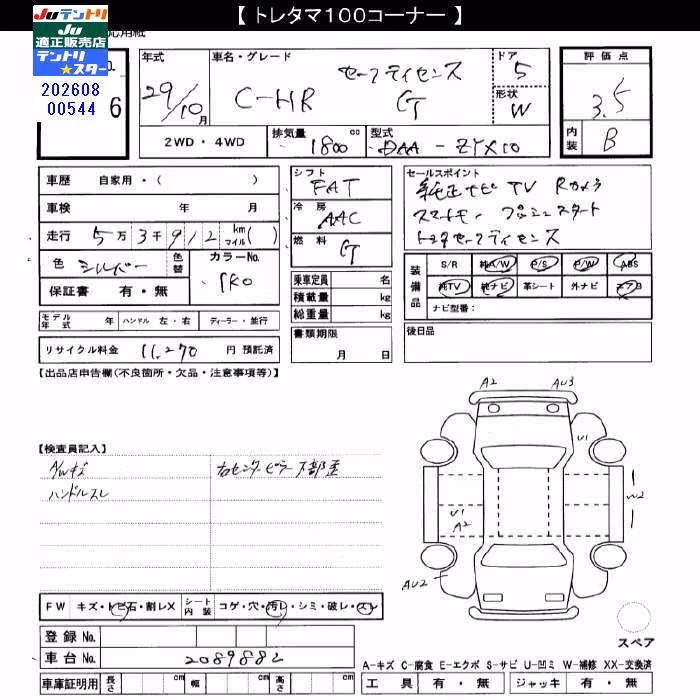 【 トレタマ100コーナー 】
Juテントリ
Ju
適正販売店
テントリ
★スター
応用紙
202608
00544
6
年式
29/10月
車名・グレード
セーフティセンス
C-HR GT
ドア
5
形状
W
評価点
3.5
内装
B
2WD・4WD
排気量
1800 cc
型式
DAA-ZYX10
車歴 自家用・( )
車検 年 月
走行 5万3千912 km マイル( )
色 シルバー 色替
カラーNo. 1K0
保証書 有・無
シフト FAT
冷房 AAC
燃料 GT
乗車定員 名
積載量 kg
総重量 kg
セールスポイント
純正ナビ TV Rカメラ
スマートキー プッシュスタート
トヨタセーフティセンス
装備品
S/R 純A/W P/S P/W ABS
純TV 純ナビ 革シート 外ナビ エアB
ナビ型番:
モデル年式 年 ハンドル 左・右 ディーラー・並行
書類期限
月 日
後日品
リサイクル料金 11,270 円 預託済
【出品店申告欄(不良箇所・欠品・注意事項等)】
A2 AU3
U1
W2
U1
A2
AU2
【検査員記入】
A/Wキズ
右センターピラー下部歪
ハンドルスレ
FW キズ・トビ石・割レX
シート内装 コゲ・穴・汚レ・シミ・破レ・スレ
登録 No.
車台 No. 2089882
スペア
A-キズ C-腐食 E-エクボ S-サビ U-凹ミ W-補修 XX-交換済
車庫証明用 長さ cm 幅 cm 高さ cm
工具 有・無 ジャッキ 有・無